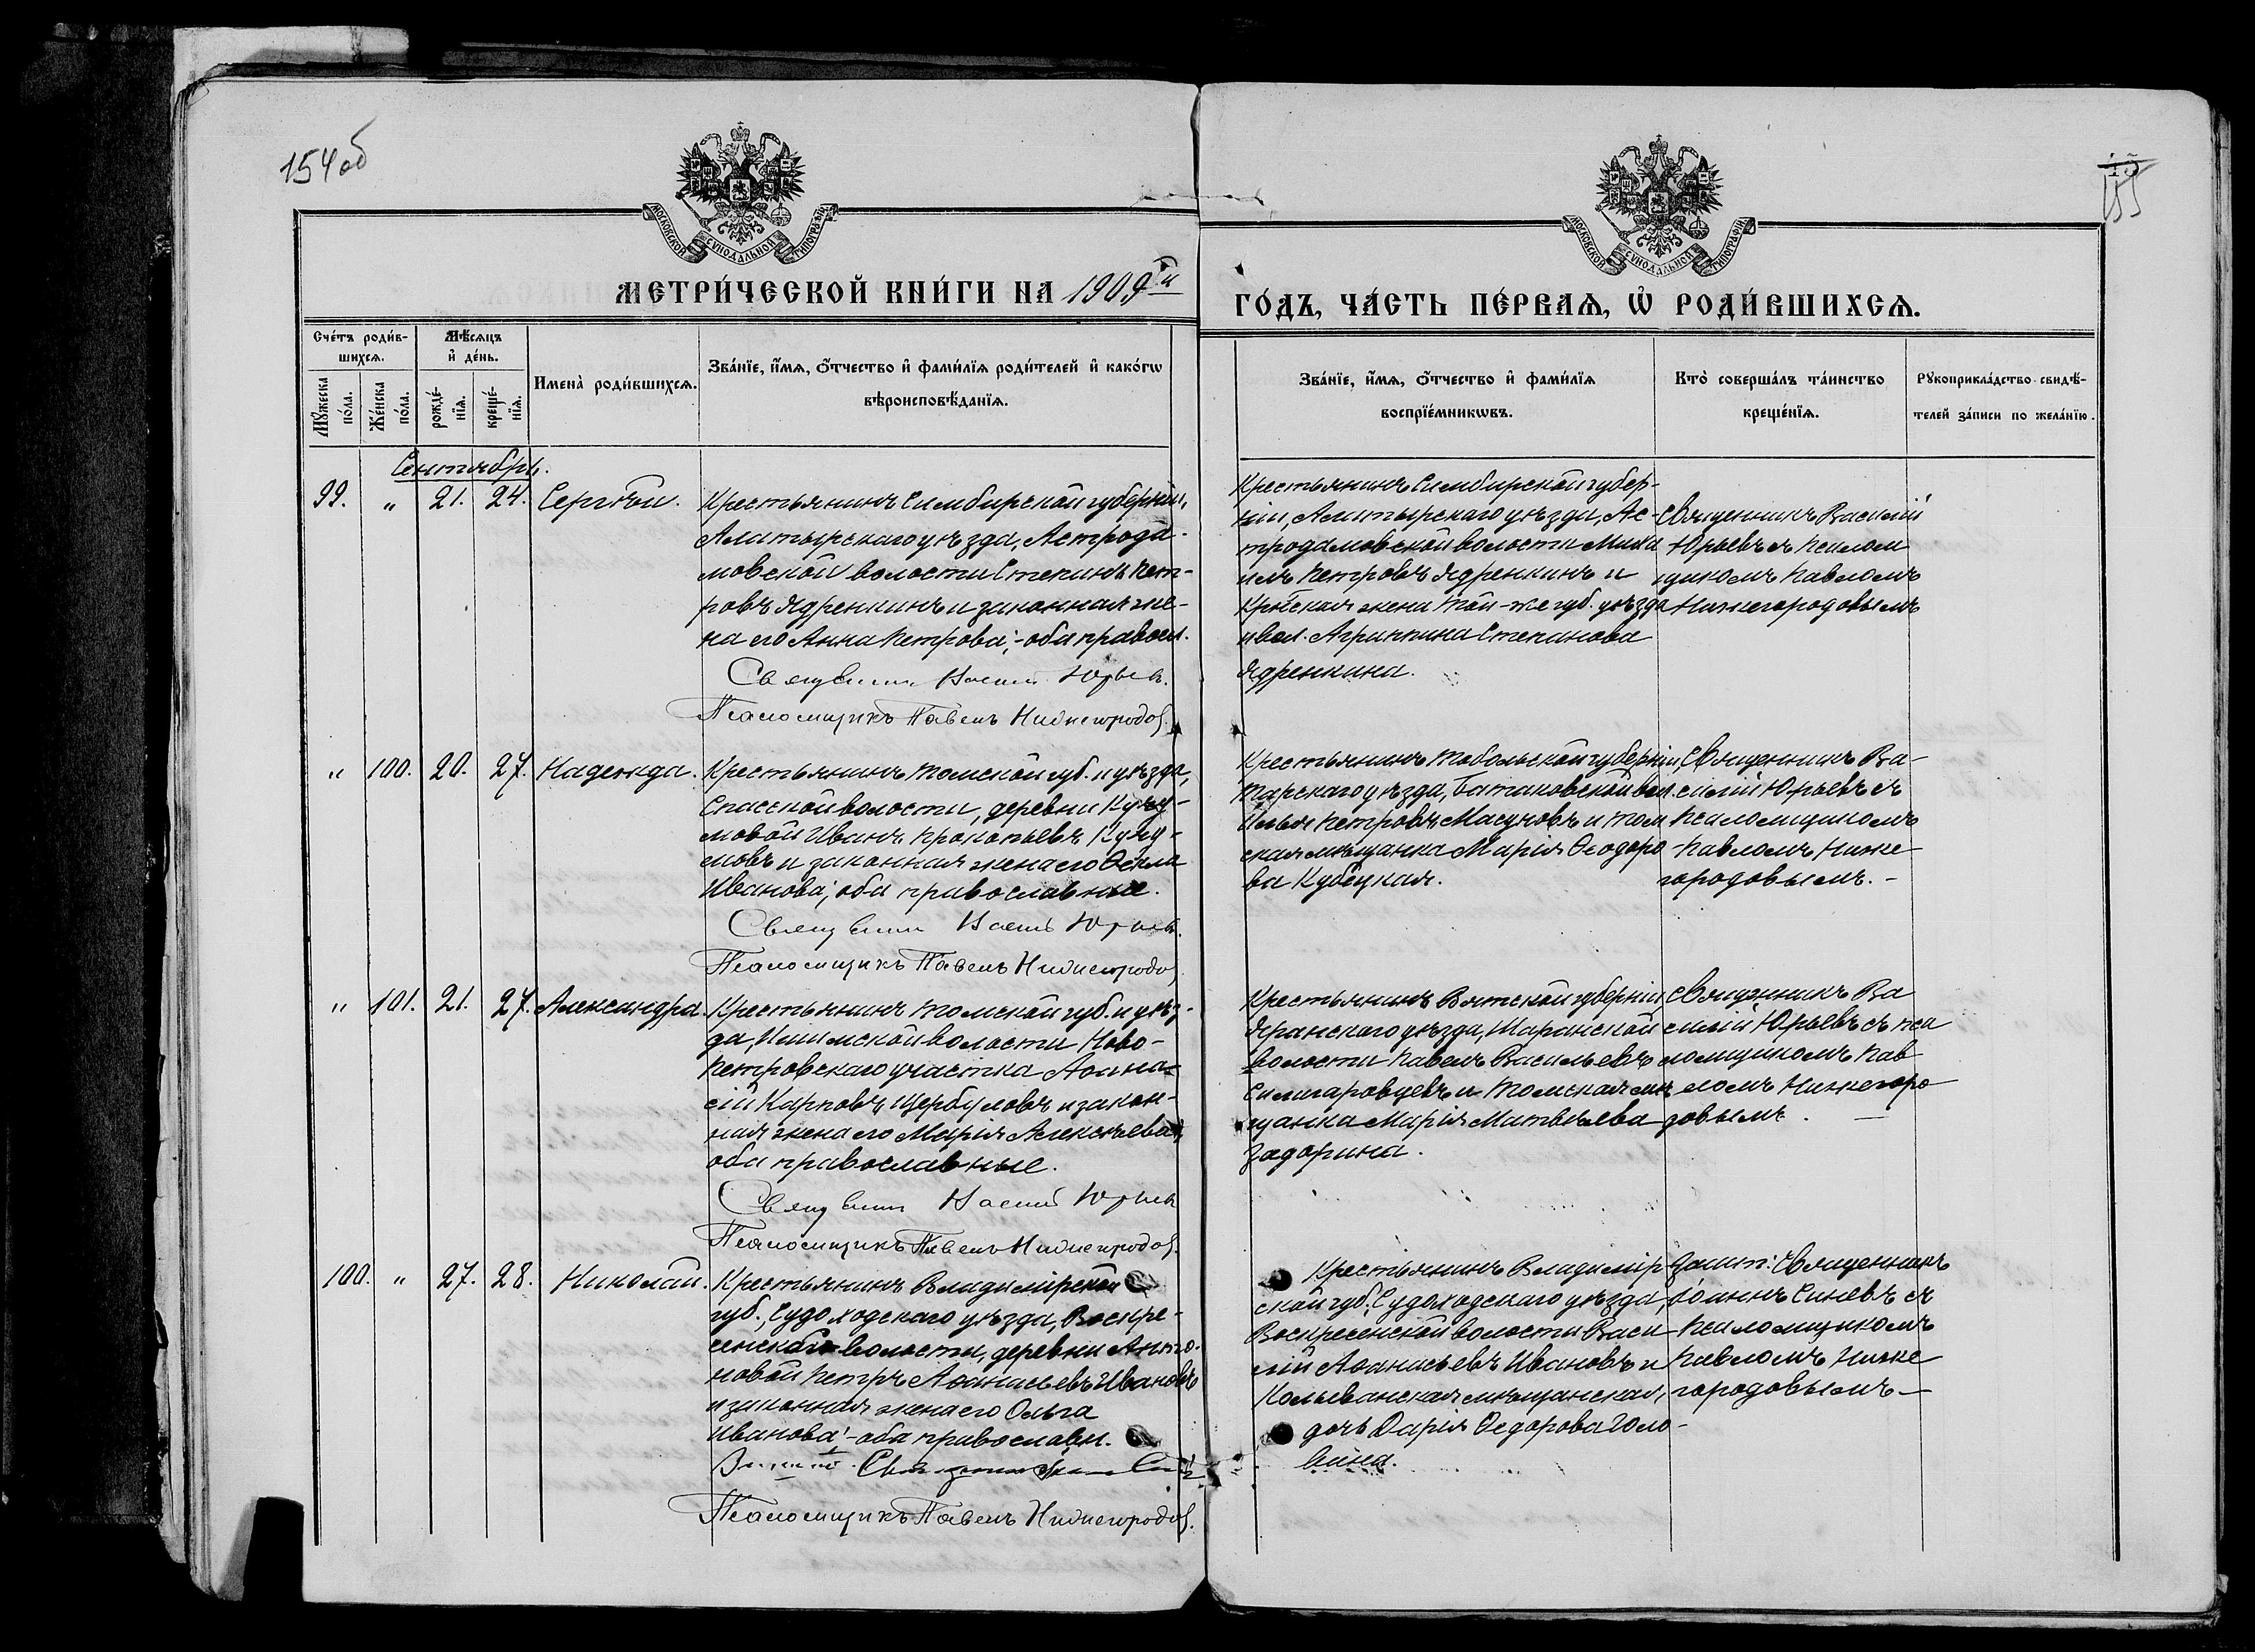 154 об
155
МОСКОВСКОЙ СѴНОДАЛЬНОЙ ТИПОГРАФІИ
МОСКОВСКОЙ СѴНОДАЛЬНОЙ ТИПОГРАФІИ
МЕТРИ́ЧЕСКОЙ КНИ́ГИ НА 1909й
ГО́ДЪ, ЧА́СТЬ ПЕ́РВАѦ, Ѡ РОДИ́ВШИХСѦ.
Сче́тъ роди́в-
шихсѧ.
Мѣ́сѧцъ
и҆ де́нь.
Мꙋ́жеска
по́ла.
Же́нска
по́ла.
рожде́-
нїѧ.
креще́-
нїѧ.
Имена̀ роди́вшихсѧ.
Зва́нїе, и҆́мѧ, ѻ҆́тчество и҆ фами́лїѧ роди́телей и҆ како́гѡ
вѣроисповѣ́данїѧ.
Зва́нїе, и҆́мѧ, ѻ҆́тчество и҆ фами́лїѧ
воспрїе́мникѡвъ.
Кто̀ соверша́лъ та́инство
креще́нїѧ.
Рꙋкоприкла́дство свидѣ́-
телей за́писи по жела́нїю.
Сентябрь.
99. " 21. 24. Сергѣй.
Крестьянинъ Симбирской губерніи,
Алатырскаго уѣзда, Астрода-
мовской волости Степанъ Пет-
ровъ Ядренкинъ и законная же-
на его Анна Петрова; - оба правосл.
Священникъ Василій Юрьевъ.
Псаломщикъ Павелъ Нижегородов
Крестьянинъ Симбирской губер-
ніи, Алатырскаго уѣзда, Ас-
традамовской волости Миха
илъ Петровъ Ядренкинъ и
Кр-нская жена той-же губ. уѣзда
и вол. Агриппина Степанова
Ядренкина.
Священникъ Василій
Юрьевъ съ псалом
щикомъ Павломъ
Нижегородовымъ
" 100. 20. 27. Надежда.
Крестьянинъ Томской губ. и уѣзда,
Спасской волости, деревни
мовой Иванъ Прокопьевъ
мовъ и законная жена его Ѳекла
Иванова; оба православные.
Священникъ Васил Юрьевъ.
Псаломщикъ Павелъ Нижегородо
Крестьянинъ Тобольской губерніи,
Тарскаго уѣзда, Батаковской вол.
Илья Петровъ Масуновъ и Том
ская мѣщанка Марія Ѳеодоро
ва Кубецкая.
Священникъ Ва-
силій Юрьевъ съ
псаломщикомъ
Павломъ Ниже
городовымъ. -
" 101. 21. 27. Александра.
Крестьянинъ Томской губ. и уѣз-
да, Ишимской волости Ново-
Петровскаго участка Аѳана-
сій Карповъ Щербуловъ и закон-
ная жена его Марія Алексѣева;
оба православные.
Священникъ Василій Юрьевъ
Псаломщикъ Павелъ Нижегородов.
Крестьянинъ Вятской губерніи,
Яранскаго уѣзда, Шаранской
волости Павелъ Васильевъ
и Томская мѣ
щанка Марія Матвѣева
Задорина.
Священникъ Ва
силій Юрьевъ съ пса
ломщикомъ Пав
ломъ Нижегоро
довымъ. -
100. " 27. 28. Николай.
Крестьянинъ Владимірской
губ., Судогодскаго уѣзда, Воскре-
сенской волости, деревни Анто-
новой Петръ Аѳанасьевъ Ивановъ
и законная жена его Ольга
Иванова; - оба православн.
Псаломщикъ Павелъ Нижегородов.
Крестьянинъ Владимір
ской губ., Судогодскаго уѣзда,
Воскресенской волости Васи
лій Аѳанасьевъ Ивановъ и
Колыванская мѣщанская,
дочь Дарія Ѳедорова Голо-
вина.
Зашт. Священникъ
Іоаннъ Синевъ съ
псаломщикомъ
Павломъ Ниже
городовымъ -